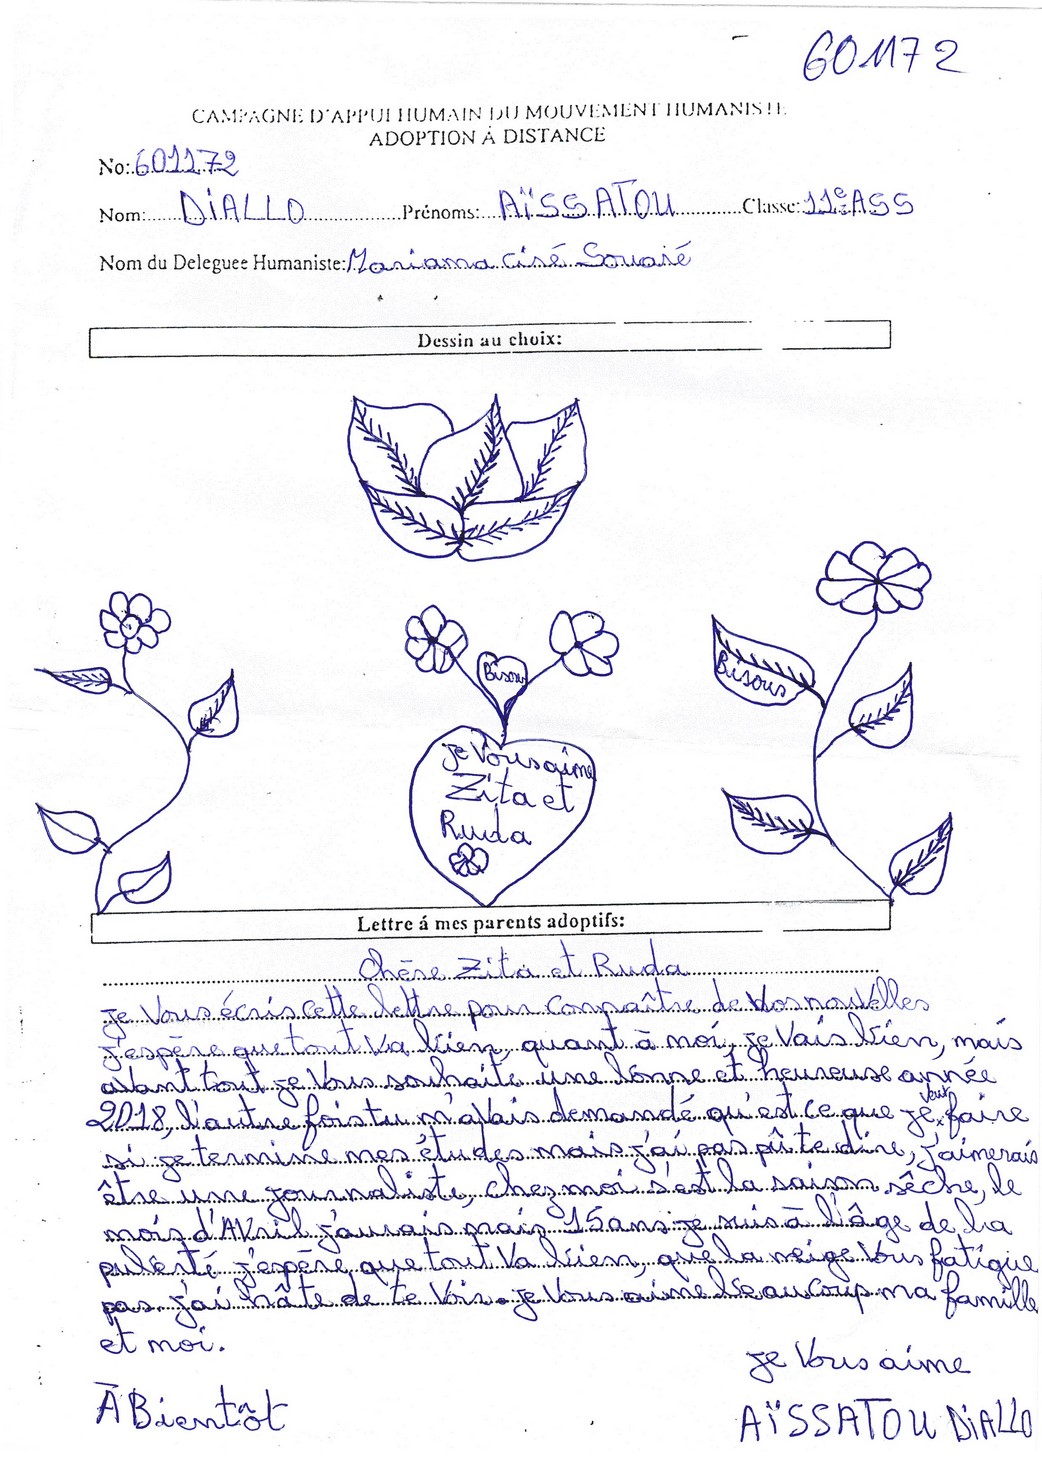 601172
CAMPAGNE D'APPUI HUMAIN DU MOUVEMENT HUMANISTE
ADOPTION Á DISTANCE
No:.601172
Nom:......DiALLO....................Prénoms:..AÏSSATOU.............Classe:11e ASS
Nom du Deleguee Humaniste:Mariama Ciré Souaré
Dessin au choix:
Bisou
Bisous
je Vous aime
Zita et
Ruda
Lettre á mes parents adoptifs:
Chère Zita et Ruda
je Vous écris cette lettre pour connaître de vos nouvelles
j'espère que tout Va bien, quant à moi, je Vais bien, mais
avant tout je Vous souhaite une bonne et heureuse année
2018, l'autre fois tu m'avais demandé qu'est ce que je veux faire
si je termine mes études mais j'ai pas pû te dire, j'aimerais
être une journaliste, chez moi s'est la saison sêche, le
mois d'AVril j'aurais mais 15 ans je suis à l'âge de la
puberté j'espère que tout Va bien, que la neige Vous fatigue
pas j'ai hâte de te Voir. je Vous aime beaucoup ma famille
et moi.
je Vous aime
À Bientôt
AÏSSATOU DiALLO